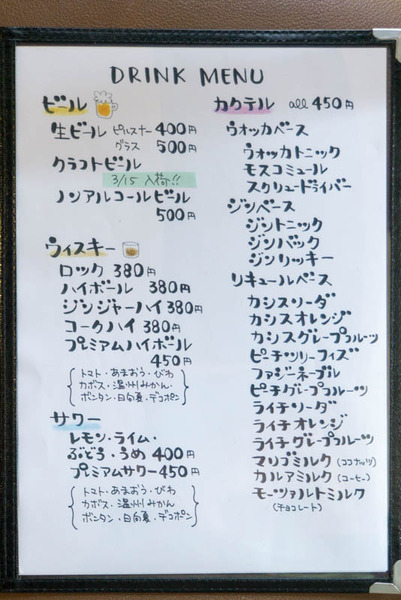 DRINK MENU
ビール
生ビール ピルスナー 400円
グラス 500円
クラフトビール
3/15 入荷!!
ノンアルコールビール
500円
ウィスキー
ロック 380円
ハイボール 380円
ジンジャーハイ 380円
コークハイ 380円
プレミアムハイボール
450円
トマト・あまおう・びわ
カボス・温州みかん・
ボンタン・日向夏・デコポン
サワー
レモン・ライム・
ぶどう・うめ 400円
プレミアムサワー 450円
トマト・あまおう・びわ
カボス・温州みかん
ボンタン・日向夏・デコポン
カクテル all 450円
ウォッカベース
ウォッカトニック
モスコミュール
スクリュードライバー
ジンベース
ジントニック
ジンバック
ジンリッキー
リキュールベース
カシスソーダ
カシスオレンジ
カシスグレープフルーツ
ピーチツリーフィズ
ファジーネーブル
ピーチグレープフルーツ
ライチソーダ
ライチオレンジ
ライチグレープフルーツ
マリブミルク (ココナッツ)
カルアミルク (コーヒー)
モーツァルトミルク
(チョコレート)